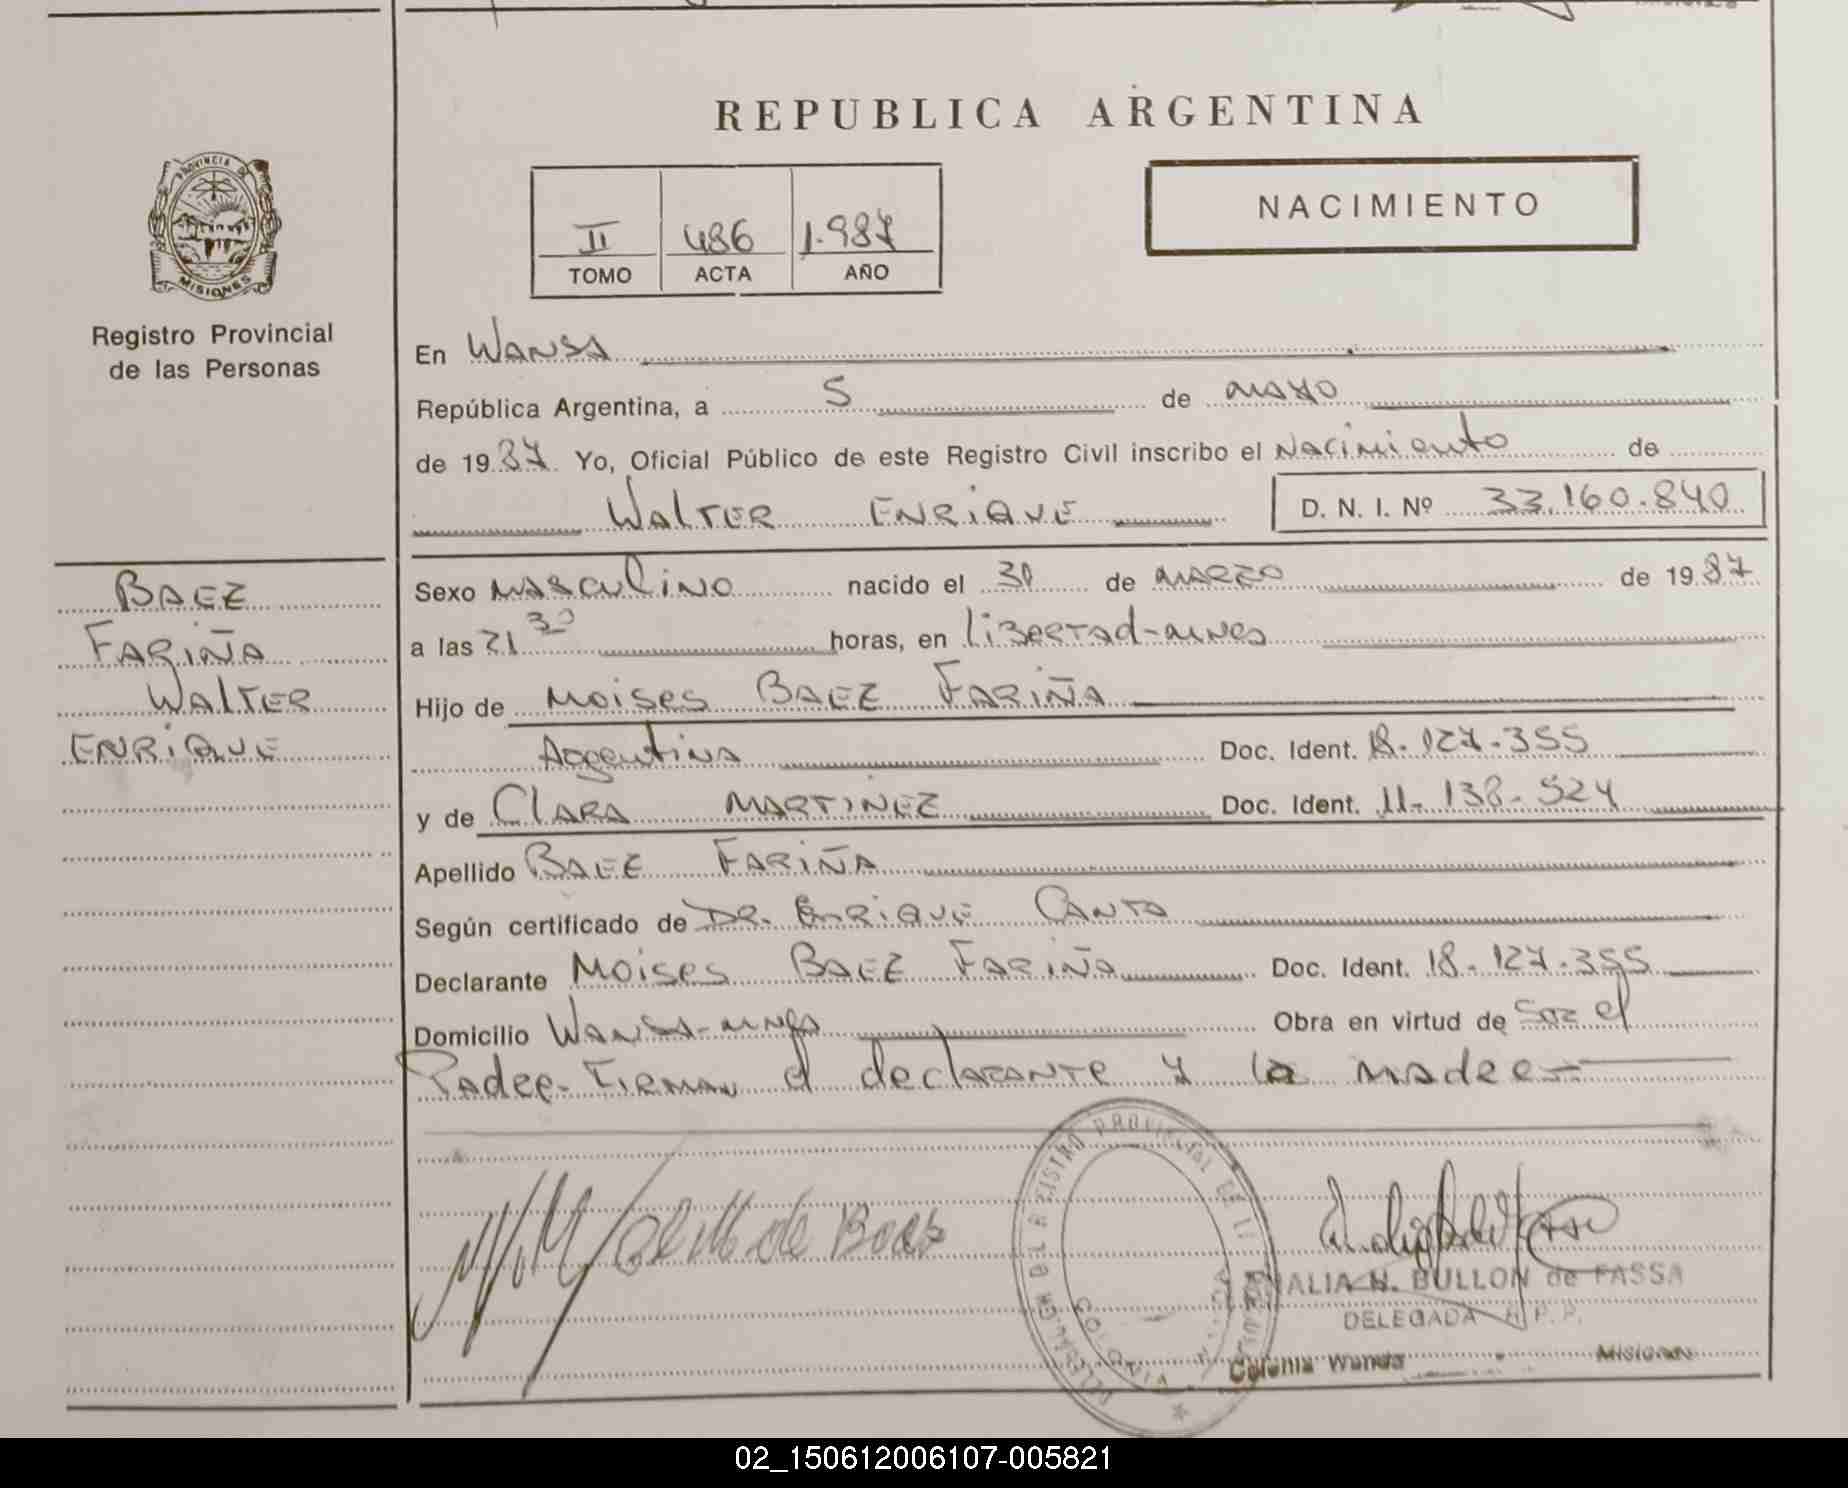 REPUBLICA ARGENTINA
PROVINCIA DE
MISIONES
Registro Provincial
de las Personas
II 486 1.987
TOMO ACTA AÑO
NACIMIENTO
En Wanda
República Argentina, a 5 de mayo
de 1987. Yo, Oficial Público de este Registro Civil inscribo el Nacimiento de
WALTER ENRIQUE D. N. I. Nº 33.160.840
BAEZ
FARIÑA
WALTER
ENRIQUE
Sexo masculino nacido el 30 de marzo de 1987
a las 21 30 horas, en Libertad-mnes
Hijo de Moises BAEZ FARIÑA
Argentina Doc. Ident. 18.127.355
y de CLARA MARTINEZ Doc. Ident. 11-138-524
Apellido BAEZ FARIÑA
Según certificado de DR. ENRIQUE CANTO
Declarante Moises BAEZ FARIÑA Doc. Ident. 18.127.355
Domicilio Wanda-mnes Obra en virtud de ser el
Padre- Firman el declarante y la madre-
de Baez
REGISTRO PROVINCIAL DE
COLONIA
AMALIA N. BULLON de FASSA
DELEGADA R.P.P.
Colonia Wanda Misiones
02_150612006107-005821